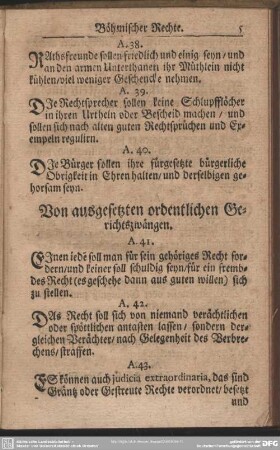 Böhmischer Rechte. 5
A. 38.
RAthsfreunde sollen friedlich und einig seyn/ und
an den armen Unterthanen ihr Müthlein nicht
kühlen/ viel weniger Geschencke nehmen.
A. 39.
DJe Rechtsprecher sollen keine Schlupfflöcher
in ihren Urtheln oder Bescheid machen/ und
sollen sich nach alten guten Rechtsprüchen und Ex-
empeln reguliren.
A. 40.
DJe Bürger sollen ihre fürgesetzte bürgerliche
Obrigkeit in Ehren halten/ und derselbigen ge-
horsam seyn.
Von ausgesetzten ordentlichen Ge-
richtszwängen.
A. 41.
EJnen iede soll man für sein gehöriges Recht for-
dern/ und keiner soll schuldig seyn/ für ein fremb-
des Recht (es geschehe dann aus guten willen) sich
zu stellen.
A. 42.
DAs Recht soll sich von niemand verächtlichen
oder spöttlichen antasten lassen/ sondern der-
gleichen Verächter/ nach Gelegenheit des Verbre-
chens/ straffen.
A. 43.
ES können auch judicia extraordinaria, das sind
Gräntz oder Gestreute Rechte verordnet/ besetzt
und